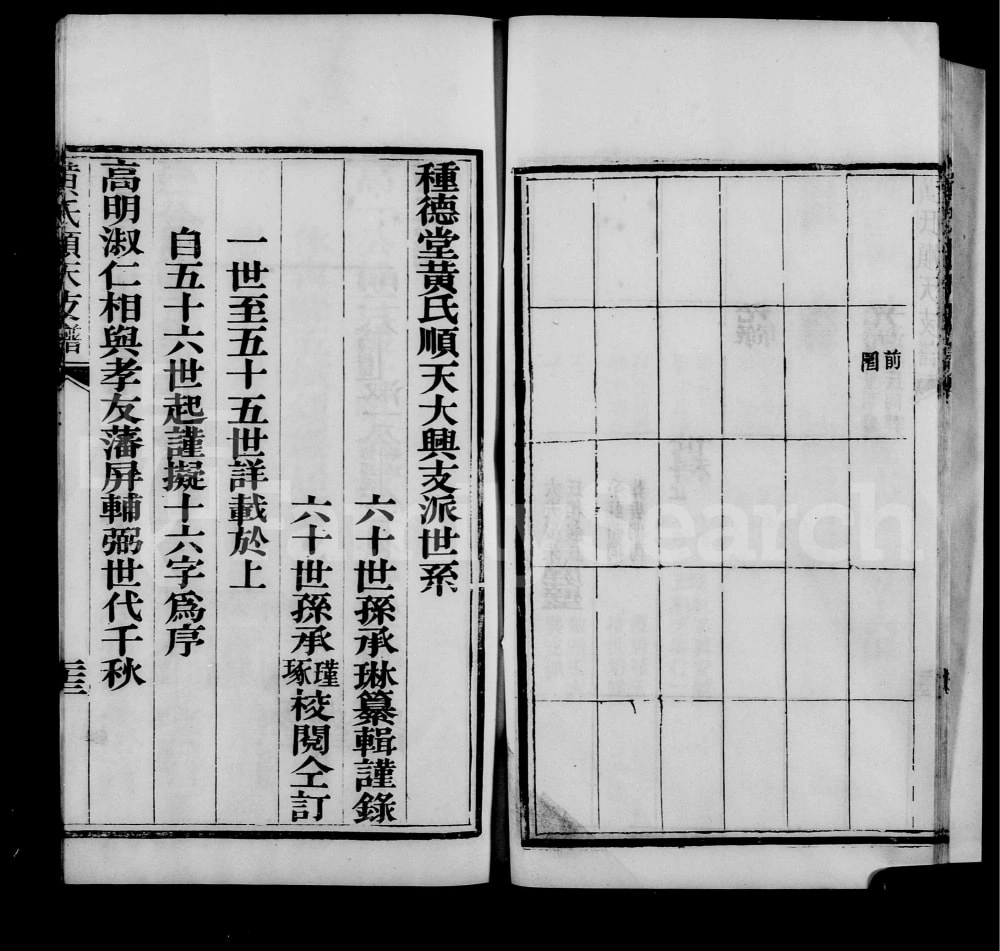 前
圖
種德堂黃氏順天大興支派世系
六十世孫承琳纂輯謹錄
六十世孫承瑾琢校閱仝訂
一世至五十五世詳載於上
自五十六世起謹擬十六字爲序
高明淑仁相與孝友藩屏輔弼世代千秋
黃氏順天支譜
三三
FamilySearch